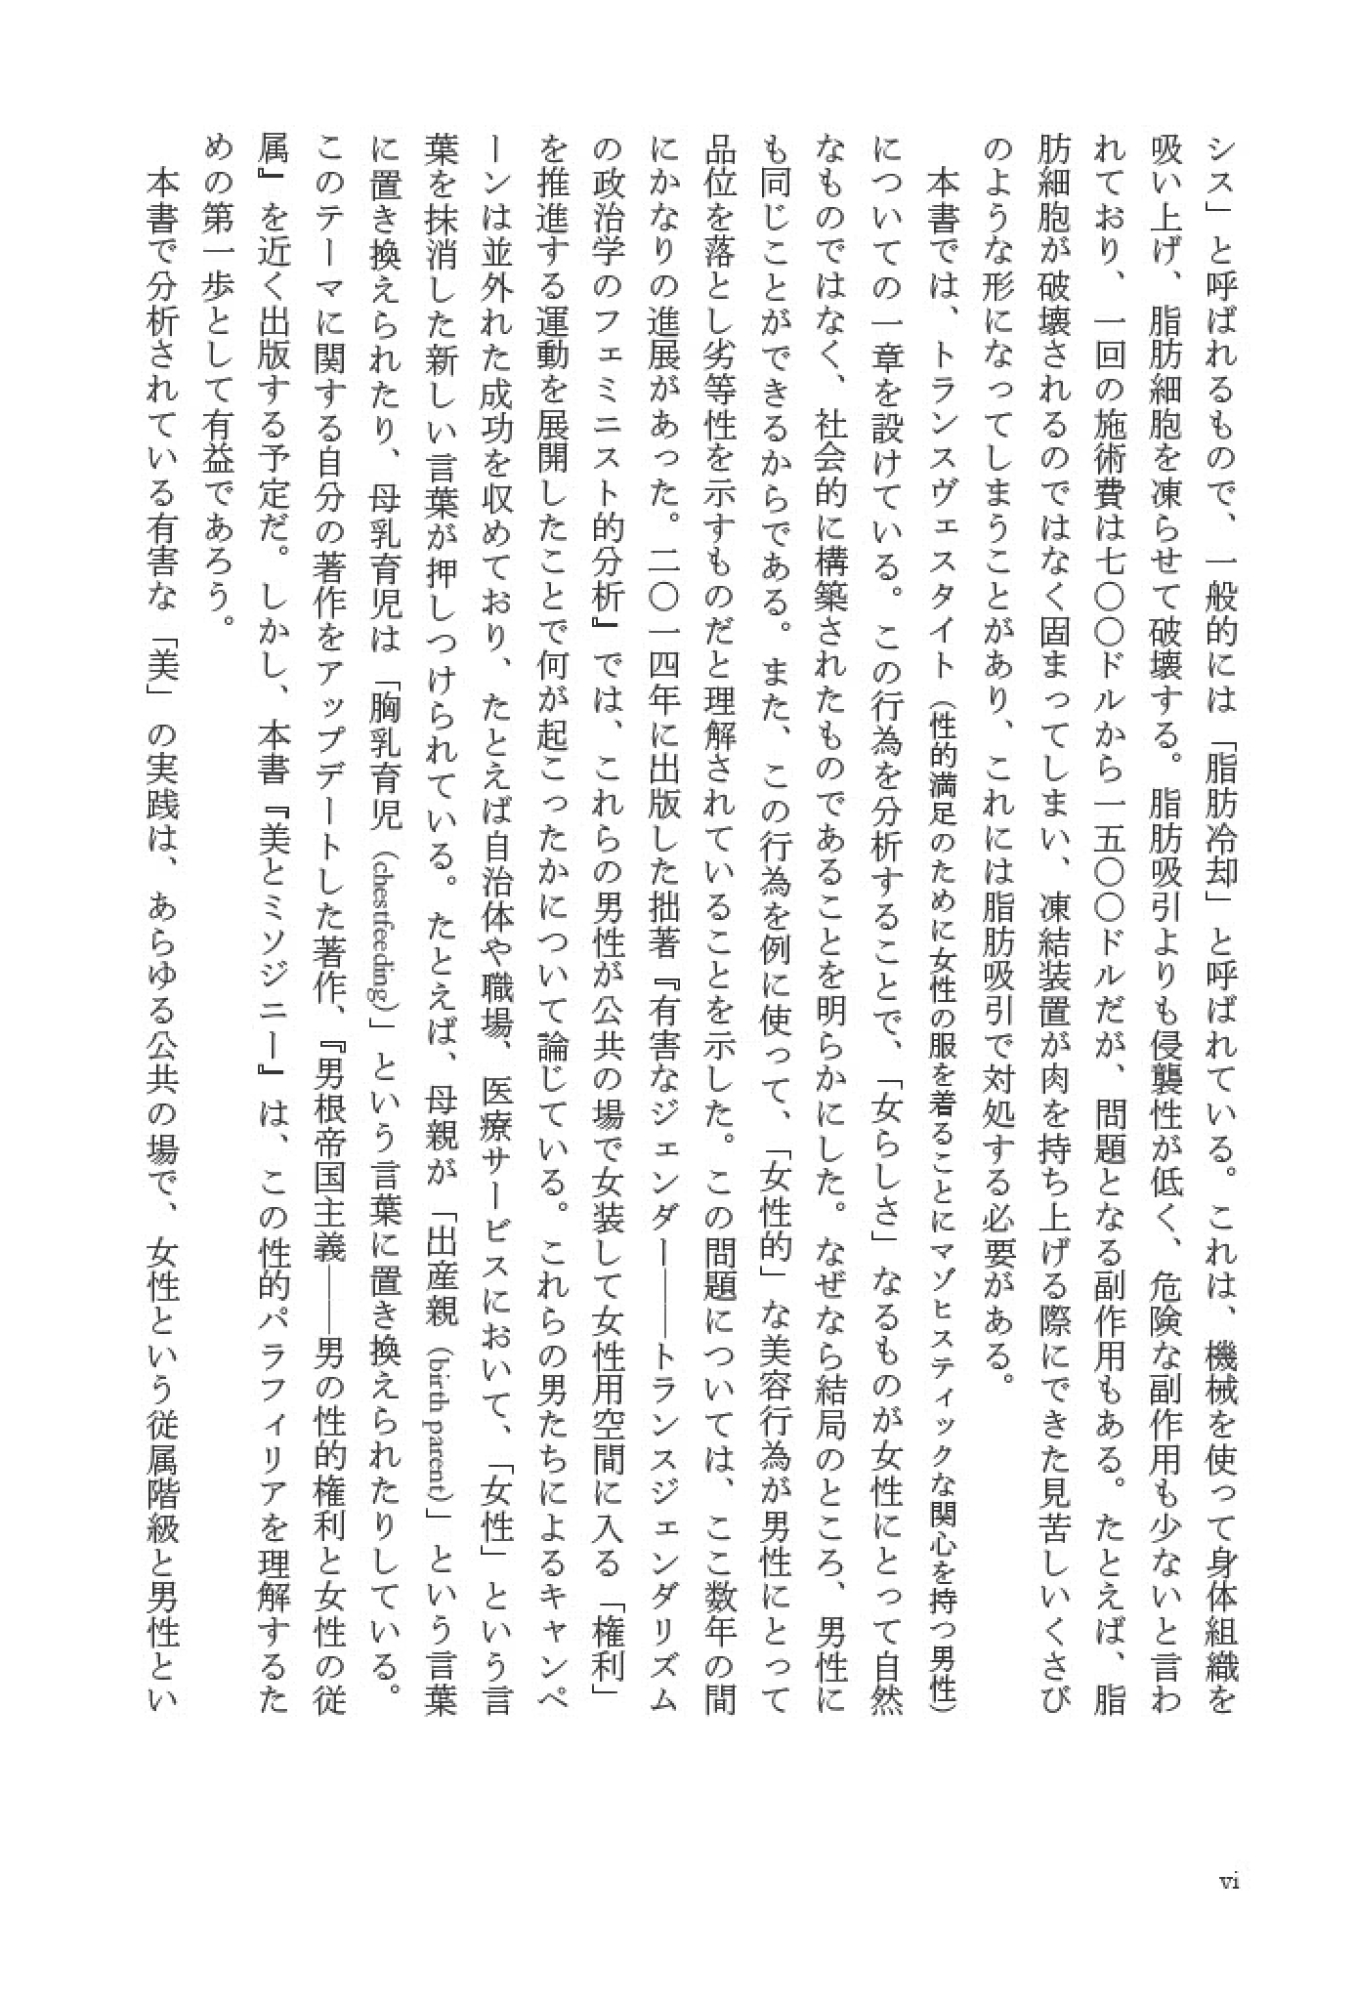 シス」と呼ばれるもので、一般的には「脂肪冷却」と呼ばれている。これは、機械を使って身体組織を
吸い上げ、脂肪細胞を凍らせて破壊する。脂肪吸引よりも侵襲性が低く、危険な副作用も少ないと言わ
れており、一回の施術費は七〇〇ドルから一五〇〇ドルだが、問題となる副作用もある。たとえば、脂
肪細胞が破壊されるのではなく固まってしまい、凍結装置が肉を持ち上げる際にできた見苦しいくさび
のような形になってしまうことがあり、これには脂肪吸引で対処する必要がある。
本書では、トランスヴェスタイト（性的満足のために女性の服を着ることにマゾヒスティックな関心を持つ男性）
についての一章を設けている。この行為を分析することで、「女らしさ」なるものが女性にとって自然
なものではなく、社会的に構築されたものであることを明らかにした。なぜなら結局のところ、男性に
も同じことができるからである。また、この行為を例に使って、「女性的」な美容行為が男性にとって
品位を落とし劣等性を示すものだと理解されていることを示した。この問題については、ここ数年の間
にかなりの進展があった。二〇一四年に出版した拙著『有害なジェンダー——トランスジェンダリズム
の政治学のフェミニスト的分析』では、これらの男性が公共の場で女装して女性用空間に入る「権利」
を推進する運動を展開したことで何が起こったかについて論じている。これらの男たちによるキャンペ
ーンは並外れた成功を収めており、たとえば自治体や職場、医療サービスにおいて、「女性」という言
葉を抹消した新しい言葉が押しつけられている。たとえば、母親が「出産親（birth parent）」という言葉
に置き換えられたり、母乳育児は「胸乳育児（chestfeeding）」という言葉に置き換えられたりしている。
このテーマに関する自分の著作をアップデートした著作、『男根帝国主義——男の性的権利と女性の従
属』を近く出版する予定だ。しかし、本書『美とミソジニー』は、この性的パラフィリアを理解するた
めの第一歩として有益であろう。
本書で分析されている有害な「美」の実践は、あらゆる公共の場で、女性という従属階級と男性とい
vi